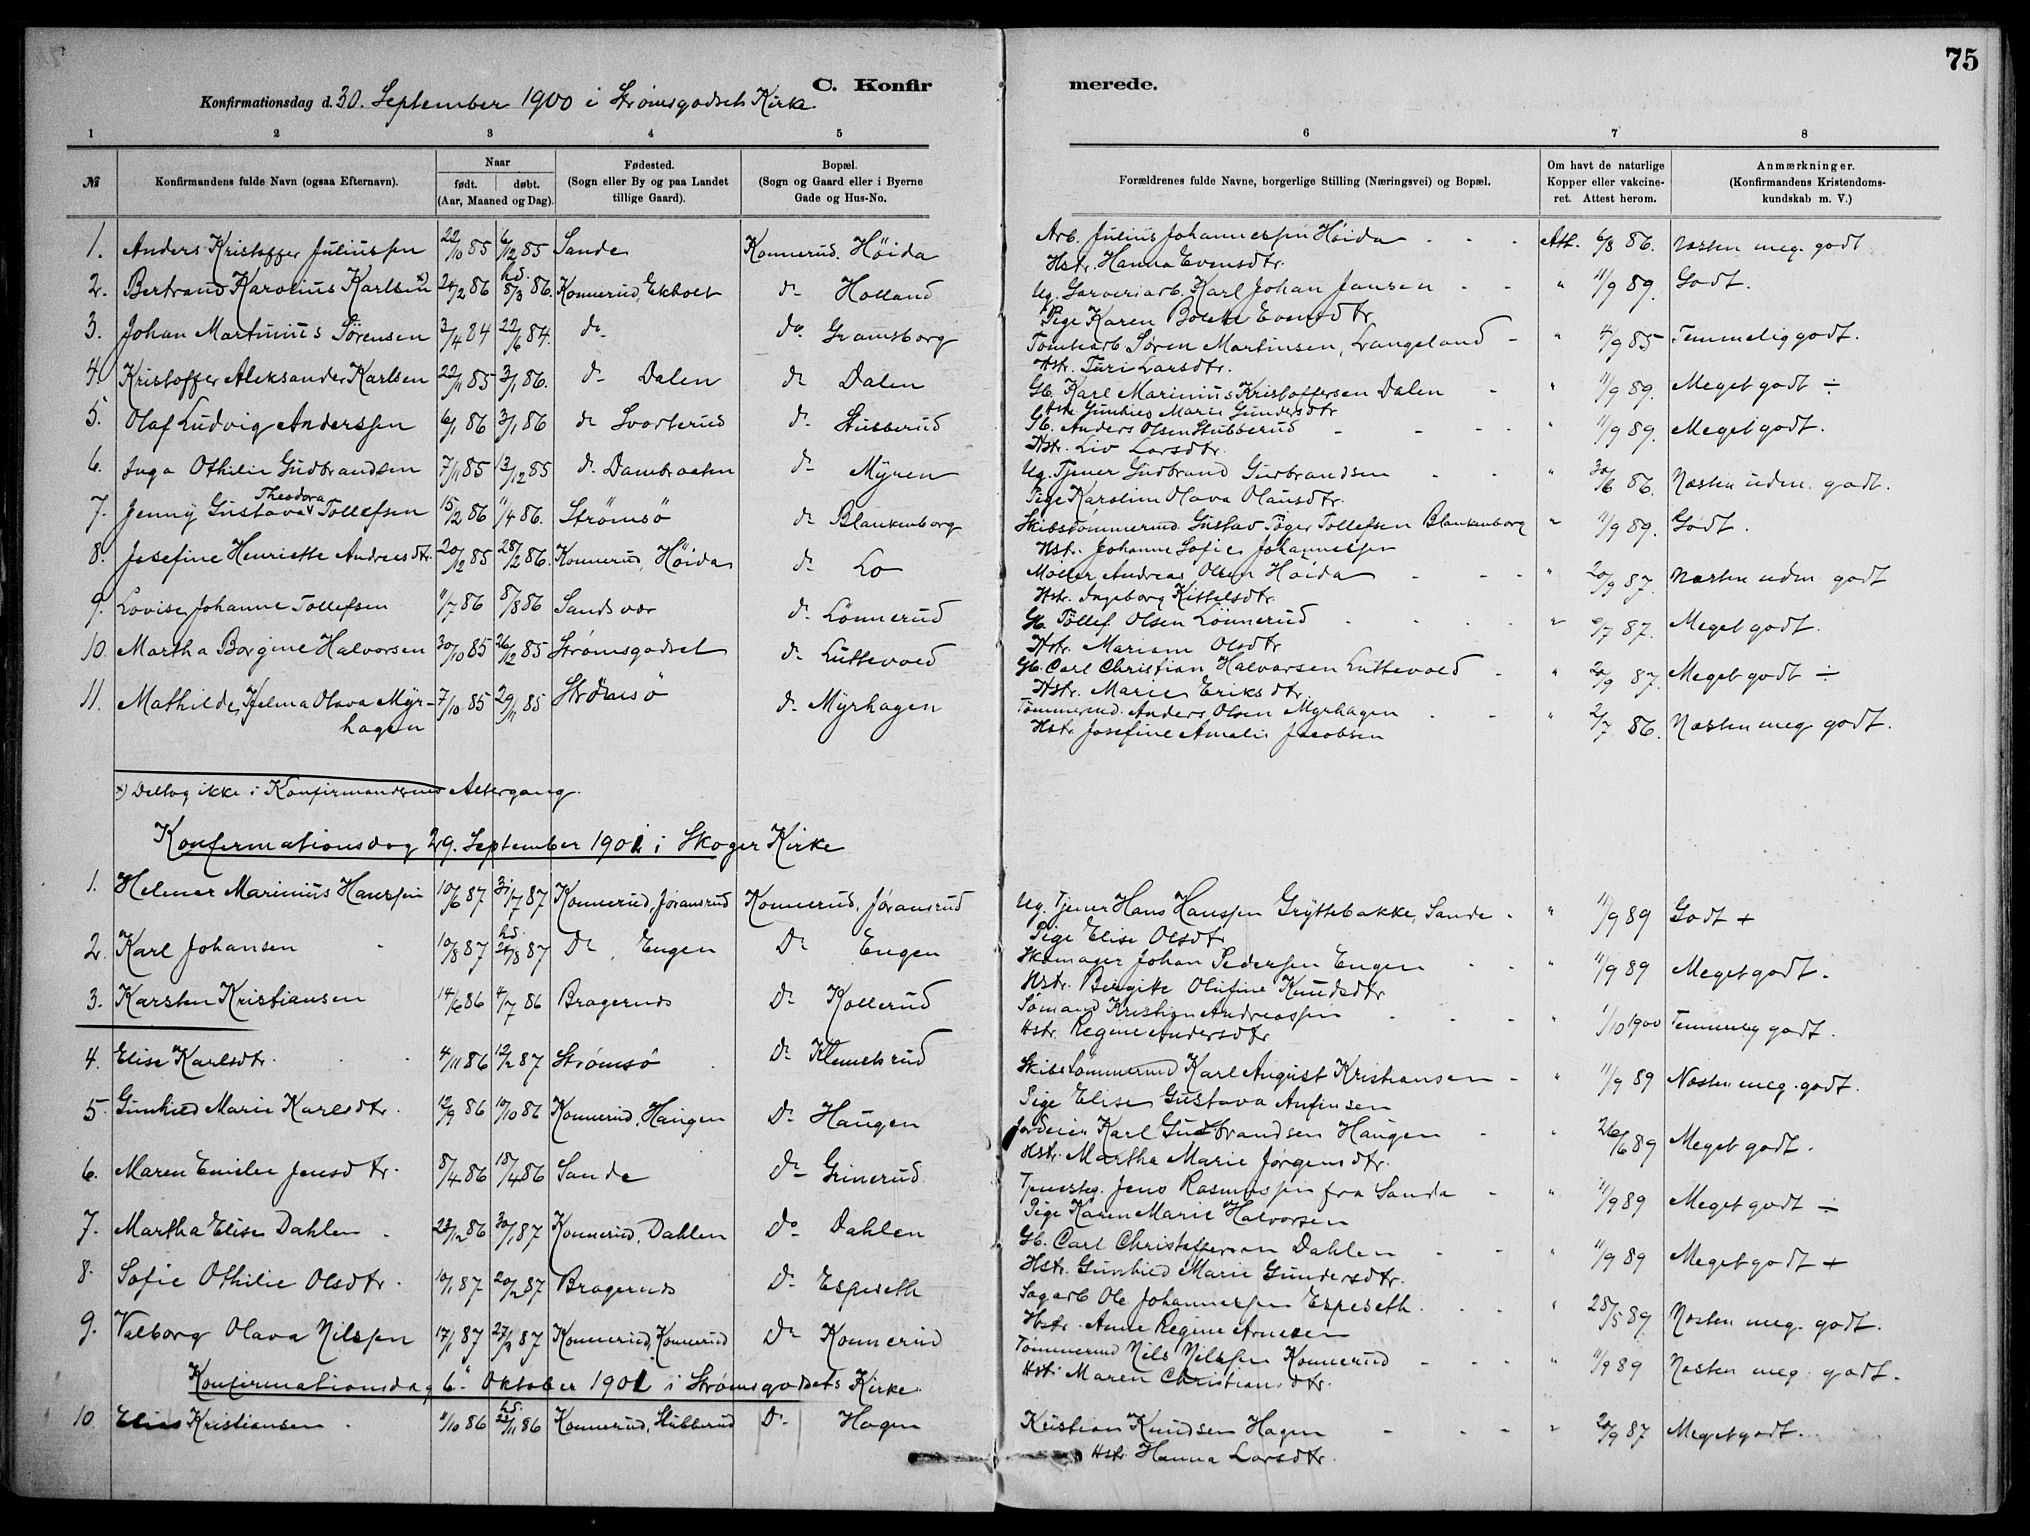 75
C. Konfirmerede.
Konfirmationsdag d. 30. September 1900 i Strømsgodsets Kirke
1 2 3 4 5 6 7 8
№ Konfirmandens fulde Navn (ogsaa Efternavn). Naar født. døbt. (Aar, Maaned og Dag). Fødested. (Sogn eller By og paa Landet tillige Gaard). Bopæl. (Sogn og Gaard eller i Byerne Gade og Hus-No. Forældrenes fulde Navne, borgerlige Stilling (Næringsvei) og Bopæl. Om havt de naturlige Kopper eller vakcineret. Attest herom. Anmærkninger. (Konfirmandens Kristendomskundskab m. V.)
1. Anders Kristoffer Juliussen 22/10 85 6/12 85 Sande Konnerud. Höida Arb. Julius Johannessen Höida - - - Att. 6/8 86. Næsten meg. godt
Hstr. Hanna Evensdtr.
2. Bertrand Karolius Karlsen x) 24/2 86 hd. 8/3 86. Konnerud, Ekholt do Holland Ug. Garveriarb. Karl Johan Jansen - - " 11/9 89. Godt.
Pige Karen Bolette Evensdtr
3. Johan Martinius Sörensen 3/4 84 22/6 84. do do Gramsborg Tomtearb Søren Martinsen, Langeland - " 4/9 85 Temmelig godt.
Hstr. Turi Larsdtr.
4. Kristoffer Aleksander Karlsen 22/11 85 3/1 86. do Dalen do Dalen Gb. Karl Marinius Kristoffersen Dalen - " 11/9 89. Meget godt ÷
Hstr Gunhild Marie Gundersdtr
5. Olaf Ludvig Anderssen 6/1 86 3/1 86 do Svarterud do Stubberud Gb. Anders Olsen Stubberud - - - - " 11/9 89. Meget godt.
Hstr. Liv Larsdtr.
6. Inga Othilie Gudbrandsen 7/11 85 13/12 85 do. Dambraaten do Myren Ug. Tjener Gudbrand Gudbrandsen - - " 30/6 86. Næsten udm. godt.
Pige Karoline Olava Olausdtr.
7. Jenny Gustava Theodora Tollefsen 15/2 86 11/4 86. Strömsö do Blankenborg Skibstömmermd. Gustav Töger Tollefsen Blankenborg " 11/9 89. Godt.
Hstr. Johanne Sofie Johannessen
8. Josefine Henriette Andreasdtr. 20/12 85 28/2 86. Konnerud, Höida do Lo Möller Andreas Olsen Höida - - - " 20/9 87. Næsten udm. godt
Hstr. Ingeborg Kittelsdtr.
9. Lovise Johanne Tollefsen 11/7 86 8/8 86 Sandsvær do Lönnerud Gb. Tollef Olsen Lönnerud - - - - " 6/7 87. Meget godt.
Hstr. Mariam Olsdtr
10. Martha Borgine Halvorsen 30/10 85 26/12 85 Strømsgodset do Luttevold Gb. Carl Christian Halvorsen Luttevold - " 20/9 87. Meget godt ÷
Hstr. Marie Eriksdtr.
11. Mathilde Hjelma Olava Myrhagen 7/10 85 29/11 85 Strömsö do Myrhagen Tømmermd. Anders Olsen Myrhagen - - " 2/7 86. Næsten meg godt.
Hstr Josefine Amalie Jacobsen
x) Deltog ikke i Konfirmandernes Altergang.
Konfirmationsdag 29. September 1901 i Skoger Kirke
1. Helmer Marinius Hanssen 10/6 87 31/7 87 Konnerud, Jøransrud Konnerud, Jøransrud Ug. Tjener Hans Hanssen Gryttebakke, Sande - " 11/9 89 Godt +
Pige Elise Olsdtr
2. Karl Johansen 10/8 87 hd. 21/8 87 Do, Engen Do Engen Skomager Johan Pedersen Engen - - " 11/9 89 Meget godt.
Hstr. Birgitte Olufine Knudsdtr
3. Karsten Kristiansen 14/6 86 4/7 86 Bragernes Do Kollerud Sømand Kristian Andreassen - - - " 1/10 1900 Temmelig godt.
Hstr. Regine Andersdtr
4. Elise Karlsdtr. 4/11 86 12/2 87 Strømsö Do Klemetsrud Skibstömmermd Karl August Kristiansen - " 11/9 89 Næsten meg. godt.
Pige Elise Gustava Anfinsen
5. Gunhild Marie Karlsdtr. 12/9 86 10/10 86 Konnerud, Haugen Do Haugen Jordeier Karl Gudbrandsen Haugen - " 26/6 89 Meget godt.
Hstr. Martha Marie Jørgensdtr.
6. Maren Emilie Jensdtr. 8/4 86 18/4 86 Sande Do Grinerud Tjenestkg. Jens Rasmussen fra Sande - " 11/9 89 Meget godt ÷
Pige Karen Marie Halvorsen
7. Martha Elise Dahlen 23/12 86 30/1 87 Konnerud, Dahlen Do Dahlen Gb. Carl Christofferson Dahlen - - " 11/9 89 Meget godt +
Hstr. Gunhild Marie Gundersdtr.
8. Sofie Othilie Olsdtr. 10/1 87 20/2 87 Bragernes Do Espeseth Sagarb Ole Johannessen Espeseth. - - " 28/5 89. Næsten meg. godt.
Hstr. Anne Regine Arnesen
9. Valborg Olava Nilssen 17/1 87 27/2 87 Konnerud, Konnerud Do Konnerud Tømmermd Nils Nilssen Konnerud - - - " 11/9 89 Næsten meg. godt.
Hstr. Maren Christiansdtr.
Konfirmationsdag 6. Oktober 1901 i Strømsgodsets Kirke.
10. Elias Kristiansen 11/10 86 hd. 23/11 86 Konnerud, Stubberud Do Hagen Kristian Knudsen Hagen - - - " 20/9 87 Meget godt.
Hstr. Hanna Larsdtr.